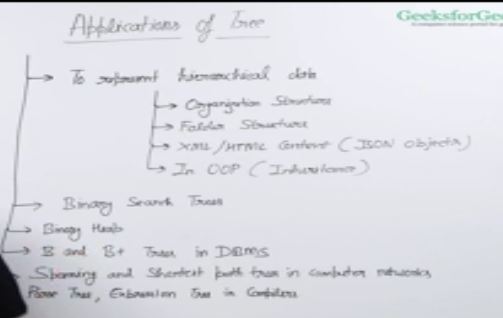 Applications of Tree
GeeksforGee
To represent hierarchical data
Organization Structure
Folder Structure
XML/HTML Content (JSON Objects)
In OOP (Inheritance)
Binary Search Trees
Binary Heap
B and B+ Trees in DBMS
Spanning and Shortest path trees in computer networks
Parse Tree, Expression Tree in Compilers